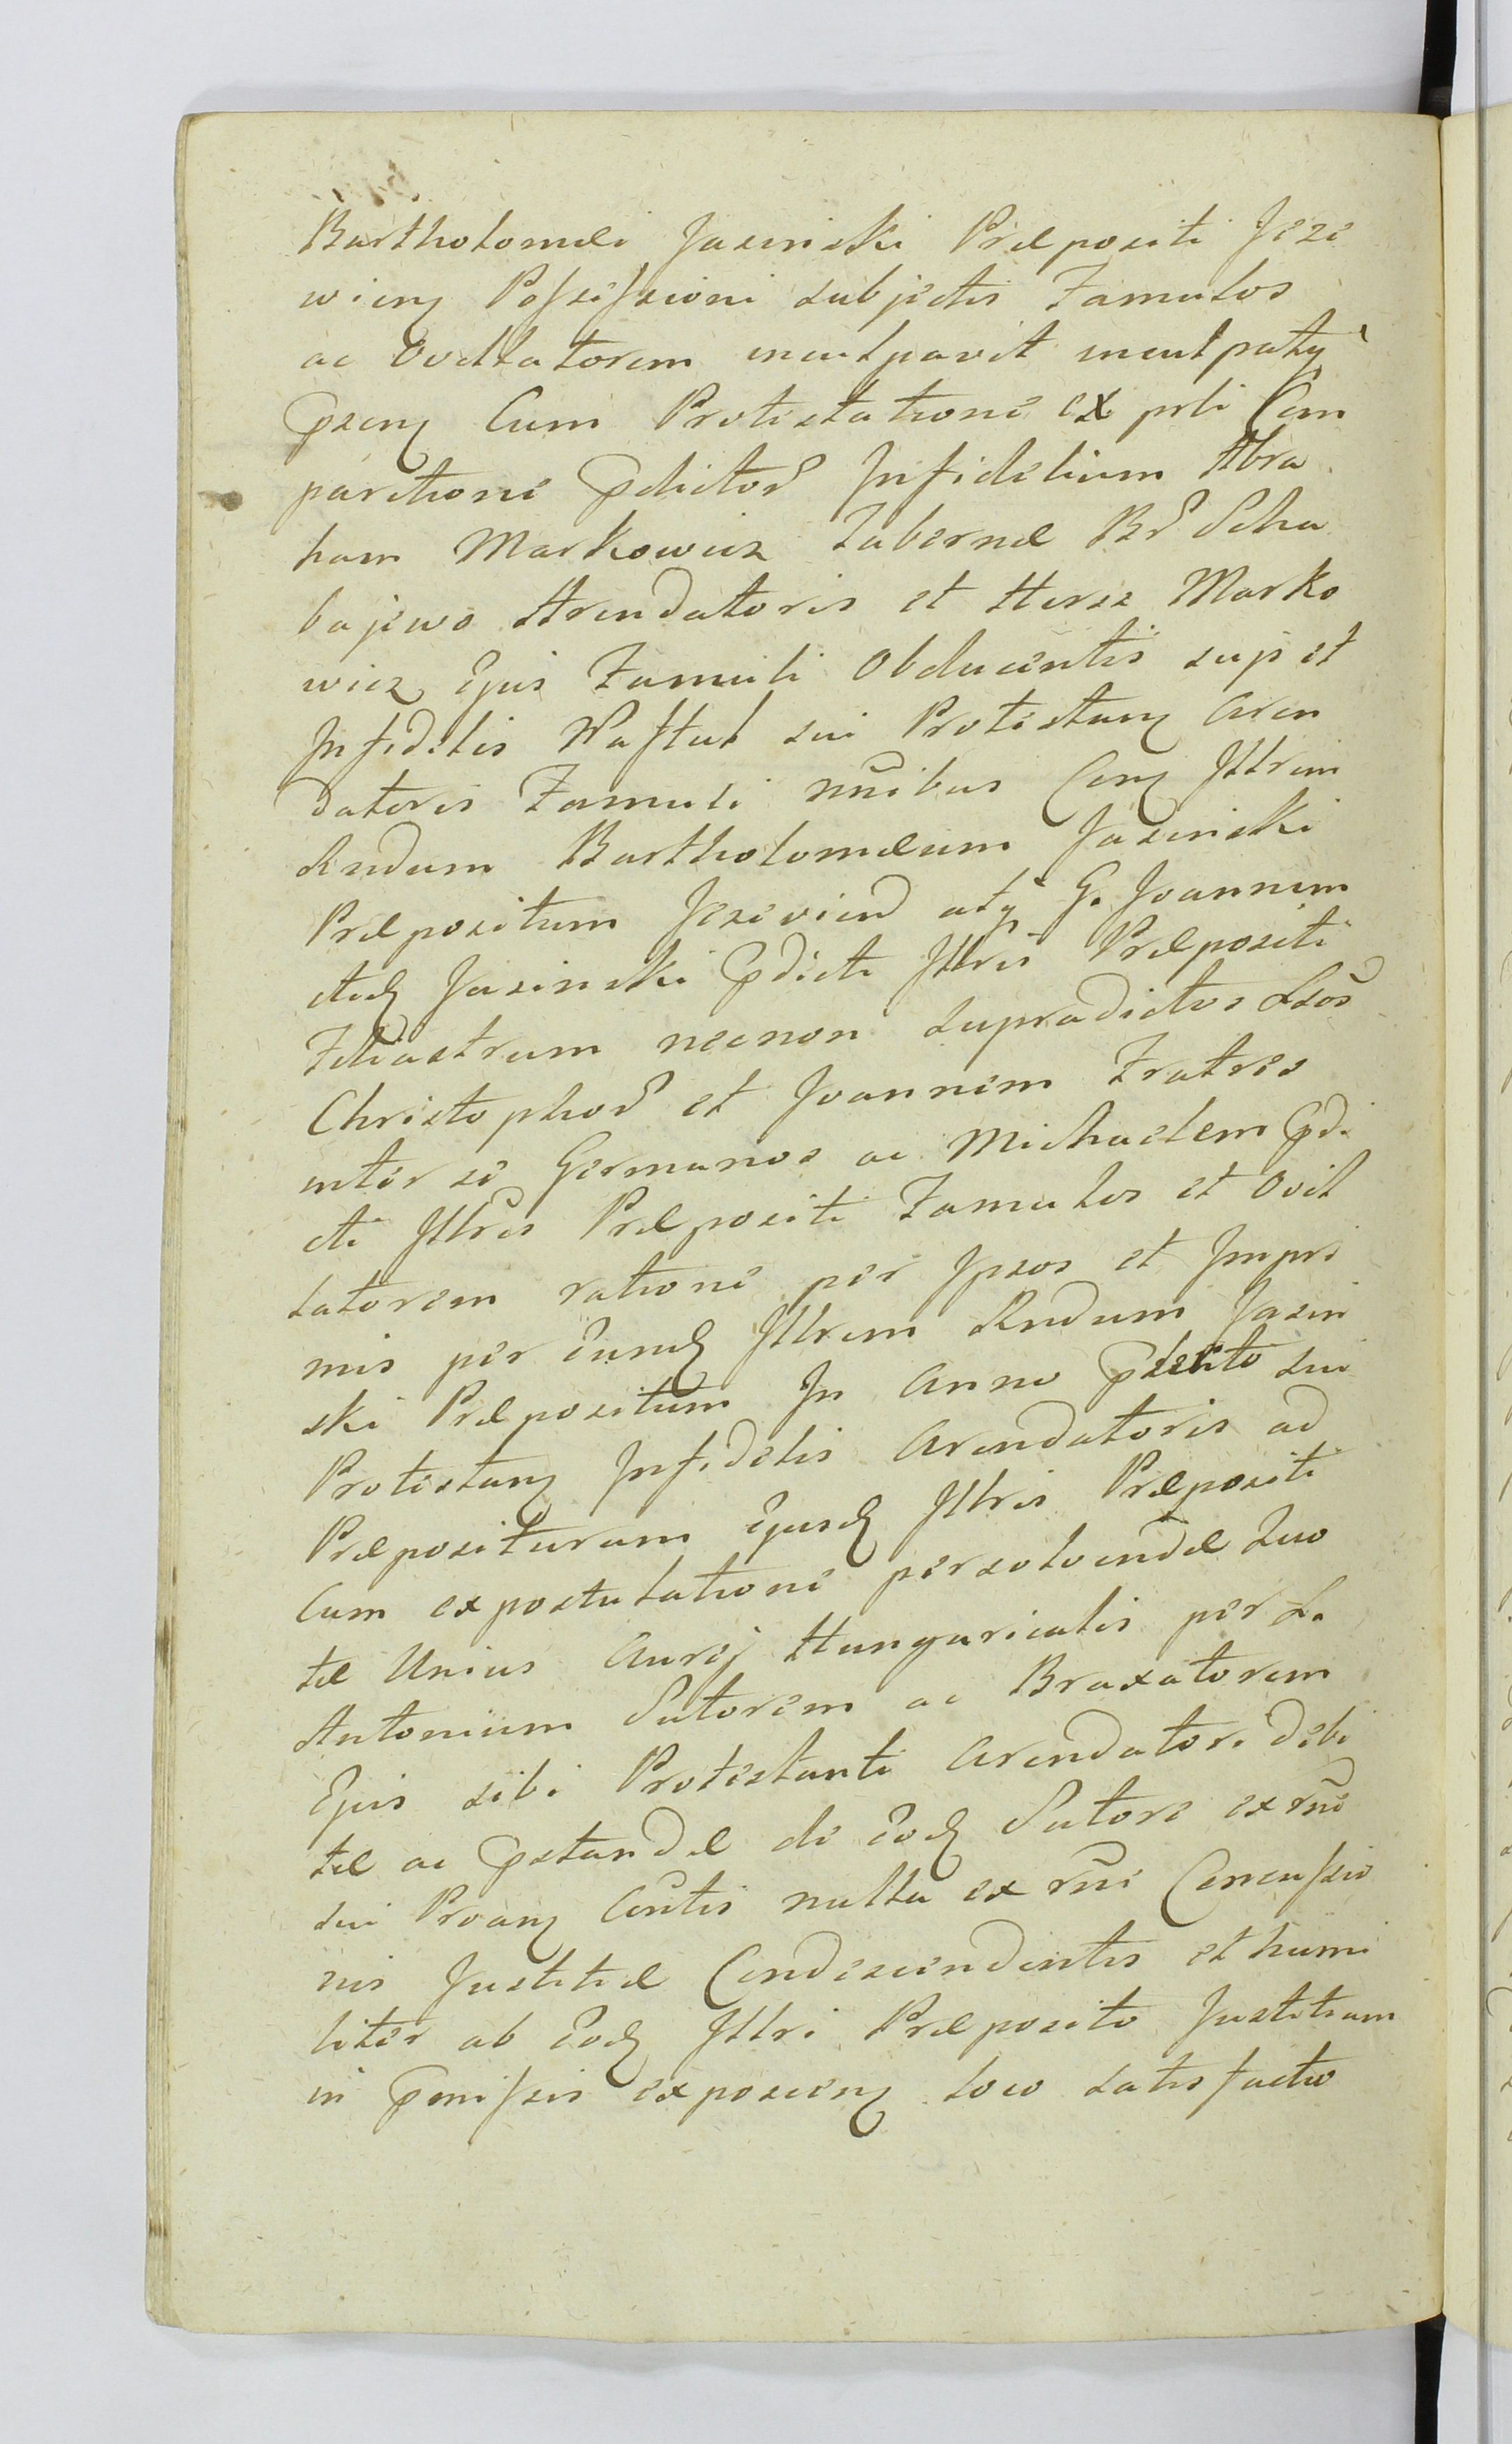 Bartholomæi Jasinski Præpositi Jeze
wien Possessioni subjectis Famulos
ac Ovillatorem inculpavit inculpatq
psen Cum Protestatione ex prti Com
paritione pdictor Infidelium Abra
ham Markowicz Tabernæ Br Scha
bajewo Arendatoris et Hersz Marko
wicz Ejus Famuli Obducentis sup et
Infidelis Naftul sui Protestan Aren
datoris Famuli mnibus Con Illrem
Rndum Bartholomæum Jasinski
Præpositum Jezevien atq G. Joannem
etiã Jasinski pdicti Illris Præpositi
Filiastrum necnon supradictos Lsos
Christophor et Joannem Fratres
inter se Germanos ac Michaelem pdi
cti Illris Præpositi Famulos et Ovil
latorem ratione per Ipsos et Impri
mis per Eund Illrem Rndum Jasin
ski Præpositum In Anno psenti sui
Protestan Infidelis Arendatoris ad
Præposituram Ejusd Illris Præpositi
Cum expostulatione persolvendæ Quo
tæ Unius Aurej Hungaricalis per L.
Antonium Sutorem ac Braxatorem
Ejus sibi Protestanti Arendatori debi
tæ ac pstandæ de Eod Sutore ex rne
sui Proan Centis nulla ex rne Concessio
nis Justitiæ Condescendentis et humi
liter ab Eod Illri Præposito Justitiam
in pmissis exposcen loco satisfactio